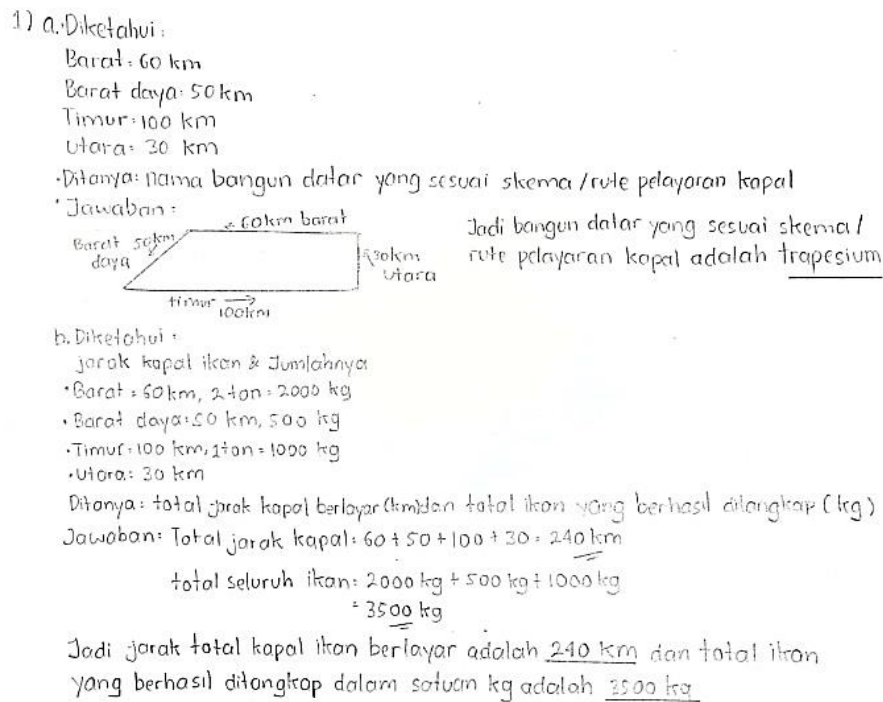 1) a. Diketahui:
Barat: 60 km
Barat daya: 50 km
Timur: 100 km
Utara: 30 km
· Ditanya: nama bangun datar yang sesuai skema/rute pelayaran kapal
· Jawaban:
← 60km barat
Barat 50km
daya
↑ 30km
Utara
timur →
100km
Jadi bangun datar yang sesuai skema/
rute pelayaran kapal adalah trapesium
b. Diketahui:
jarak kapal ikan & Jumlahnya
· Barat = 60 km, 2 ton = 2000 kg
· Barat daya: 50 km, 500 kg
· Timur: 100 km, 1 ton = 1000 kg
· Utara: 30 km
Ditanya: total jarak kapal berlayar (km) dan total ikan yang berhasil ditangkap (kg)
Jawaban: Total jarak kapal: 60 + 50 + 100 + 30 = 240 km
total seluruh ikan: 2000 kg + 500 kg + 1000 kg
= 3500 kg
Jadi jarak total kapal ikan berlayar adalah 240 km dan total ikan
yang berhasil ditangkap dalam satuan kg adalah 3500 kg